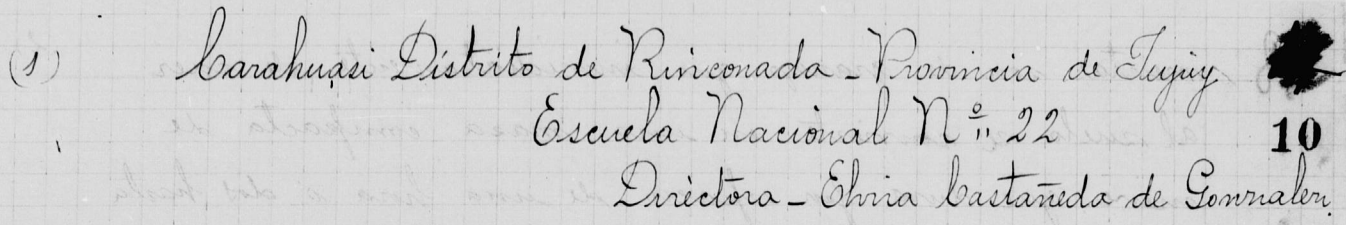 (1) Carahuasi Distrito de Rinconada - Provincia de Jujuy
Escuela Nacional Nº 22
10
Directora - Elvira Castañeda de Gonzalez.